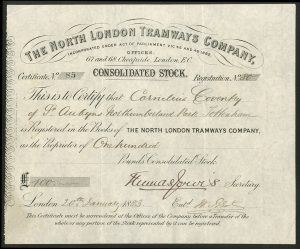 THE NORTH LONDON TRAMWAYS COMPANY.
INCORPORATED UNDER ACT OF PARLIAMENT
OFFICES
67 and 68 Cheapside, London, E.C.
CONSOLIDATED STOCK.
Certificate No. 85 Registration No.
This is to Certify that Cornelius Coventry
of St. Aubyns Northumberland Park Tottenham
is Registered in the Books of THE NORTH LONDON TRAMWAYS COMPANY,
as the Proprietor of One hundred
Pounds Consolidated Stock
£ 100 Secretary
London 20th January 1883
This Certificate must be surrendered at the Offices of the Company before a Transfer of the
whole or any portion of the Stock represented by it can be registered.